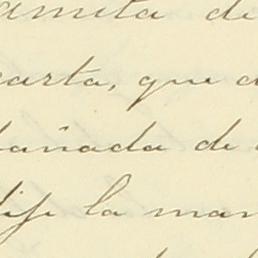 amita de
carta, que a
pañada de
dije la man